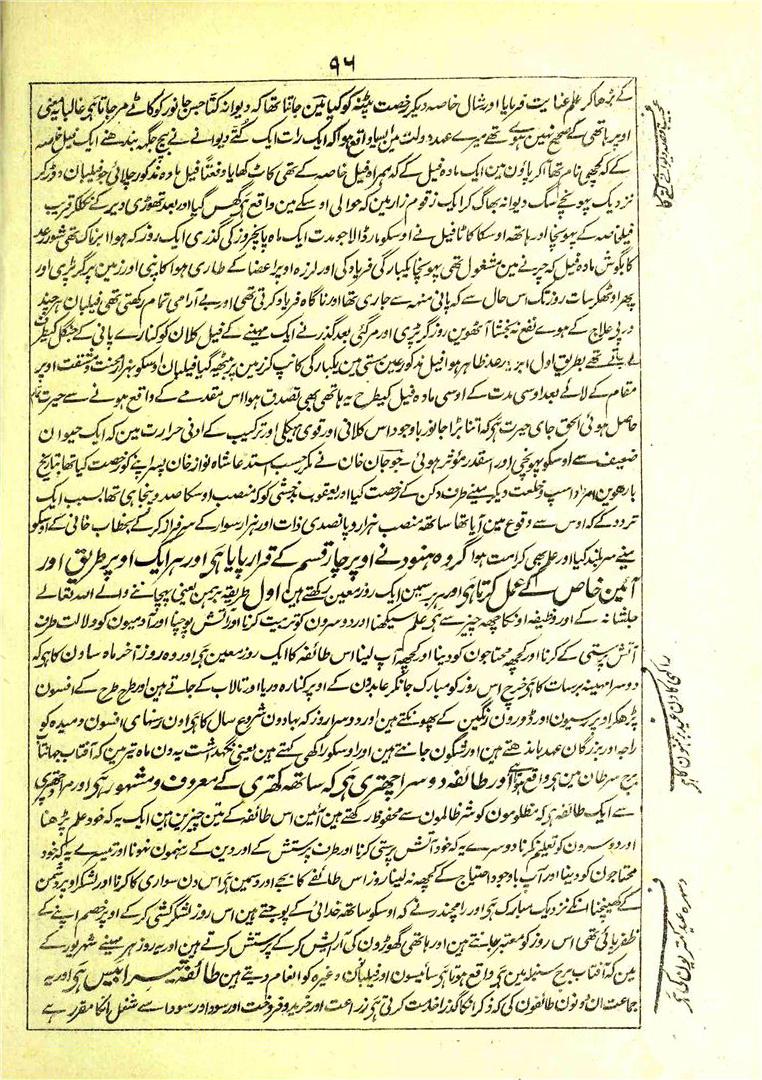 ۹۶
کے بڑھا کر علم عنایت فرمایا اور شال خاصہ دیکر رخصت پٹنے کو کیا مین جانتا تھا کہ دیوانہ کتا جس جانور کو کاٹے مر جاتا ہی غالباً یہ معنی
اوپر ہاتھی کے صحیح نہین ہوے تھے میرے عہد دولت مین ایسا واقع ہوا کہ ایک رات ایک کتے دیوانے نے بیچ جگہ بندھنے ایک فیل خاصہ
کے کہ کچھی نام تھا آکر پاؤن مین ایک مادہ فیل کے کہ ہمراہ فیل خاصہ کے تھی کاٹ کھایا دفعتاً فیل مادہ مذکور چلائی جو فیلبان دوڑ کر
نزدیک پہونچے سگ دیوانہ بھاگ کر ایک زقوم زار مین کہ حوالی اوسکے مین واقع ہی گھس گیا اور بعد تھوڑی دیر کے نکلکر قریب
فیلخاصہ کے پہونچا اور ہاتھ اوسکا کاٹا فیل نے اوسکو مار ڈالا جو مدت ایک ماہ پانچروز کی گذری ایک روز کہ ہوا ابرناک تھی شور رعد
کا بگوش مادہ فیل کہ چرنے مین مشغول تھی پہونچا یکبارگی فریاد کی اور لرزہ اوپر اعضا کے طاری ہوا کانپی اور زمین پر گر پڑی اور
پھر اوٹھکر سات روز تک اس حال سے کہ پانی منہ سے جاری تھا اور ناگاہ فریاد کرتی تھی اور بے آرامی تمام رکھتی تھی فیلبان ہر چند
درپی علاج کے ہوے نفع نہ بخشا آٹھوین روز گر پڑی اور مر گئی بعد گذرنے ایک مہینے کے فیل کلان کو کنارے پانی کے جنگل کیطرف
لے جاتے تھے بطریق اول ابر و رعد ظاہر ہوا فیل مذکور عین مستی مین یکبارگی کانپ کر زمین پر بیٹھ گیا فیلبان اوسکو ہزار محنت و مشقت اوپر
مقام کے لائے بعد اوسی مدت کے اوسی مادہ فیل کیطرح یہ ہاتھی بھی تصدق ہوا اس مقدمے کے واقع ہونے سے حیرت تمام
حاصل ہوئی الحق جای حیرت ہی کہ اتنا بڑا جانور باوجود اس کلانی اور قوی ہیکلی اور ترکیب کے ادنی حرارت مین کہ ایک حیوان
ضعیف سے اوسکو پہونچی اور اسقدر مؤثر ہوئی جو خان خان نے مکرر حسب استدعا شاہ نواز خان پسر اپنے کو رخصت کیا تھا بتاریخ
بارھوین امرداد اسپ و خلعت دیکر مینے طرف دکن کے رخصت کیا اور یعقوب بدخشی کو کہ منصب اوسکا صد و پنجاہی تھا بسبب ایک
تردد کے کہ اوس سے وقوع مین آیا تھا ساتھ منصب ہزار و پانصدی ذات اور ہزار سوار کے سرفراز کر کے بخطاب خانی کے اوسکو
مینے سر بلند کیا اور علم بھی کرامت ہوا گروہ ہنود نے اوپر چار قسم کے قرار پایا ہی اور ہر ایک اوپر طریق اور
آئین خاص کے عمل کرتا ہی اور ہر برسمین ایک روز معین رکھتے ہین اول طریقہ برہمن یعنی پہچاننے والے اللہ تعالے
جلشانہ کے اور وظیفہ اونکا چھہ چیز سے ہی علم سیکھنا اور دوسرون کو تربیت کرنا اور آتش پوجنا اور آدمیون کو دلالت طرف
آتش پرستی کے کرنا اور کچھ محتاجون کو دینا اور کچھ آپ لینا اس طائفہ کا ایک روز معین ہی اور وہ روز آخر ماہ ساون کا ہی کہ
دوسرا مہینہ برسات کا ہی خرچ اس روز کو مبارک جانکر عابدون کے اوپر کنارہ دریا اور تالاب کے جاتے ہین اور طرح طرح کے افسون
پڑھکر اوپر رسیون اور ڈورون رنگین کے پھونکتے ہین اور دوسرا روز کہ بہادون شروع سال کا ہی اون رسنہای افسون دمیدہ کو
راجہ اور بزرگان عہد باندھتے ہین اور شگون جانتے ہین اور اوسکو راکھی کہتے ہین یعنی نگہداشت یہ دن ماہ تیر مین کہ آفتاب جہانتاب
برج سرطان مین ہی واقع ہوتا ہی اور طائفہ دوسرا چھتری ہی کہ ساتھ کھتری کے معروف و مشہور ہی اور مراد چھتری
سے ایک طائفہ ہی کہ مظلومون کو شر ظالمون سے محفوظ رکھتے ہین آئین اس طائفہ کے تین چیزین ہین ایک یہ کہ خود علم پڑھنا
اور دوسرون کو تعلیم نکرنا دوسرے یہ کہ خود آتش پرستی کرنا اور طرف پرستش کے اور دین کے رہنمون نہونا اور تیسرے یہ کہ خود
محتاجون کو دینا اور آپ باوجود احتیاج کے کچھ نہ لینا روز اس طائفے کا بجے اور دسمین ہی اس دن سواری کا کرنا اور لشکر اوپر دشمن
کے کھینچنا انکے نزدیک مبارک ہی اور رامچندر نے کہ اوسکو ساتھ خدائی کے پوجتے ہین اس روز لشکر کشی کر کے اوپر خصم اپنے کے
ظفر پائی تھی اس روز کو معتبر جانتے ہین اور ہاتھی گھوڑون کی آرایش کر کے پرستش کرتے ہین اور یہ روز ہر مہینے شہریور کے
مین کہ آفتاب برج سنبلہ مین ہی واقع ہوتا ہی سائیسون اور فیلبانون وغیرہ کو انعام دیتے ہین طائفہ تیسرا بیس ہی اور یہ
جماعت ان دونون طائفون کی کہ ذکر انکا گذرا خدمت کرتی ہی زراعت اور خرید و فروخت اور سود اور سودا سے شغل انکا مقرر ہے
راکھی کا دن عید برہمنون کا ہی
دسہرہ عید کھتریون کی ہی